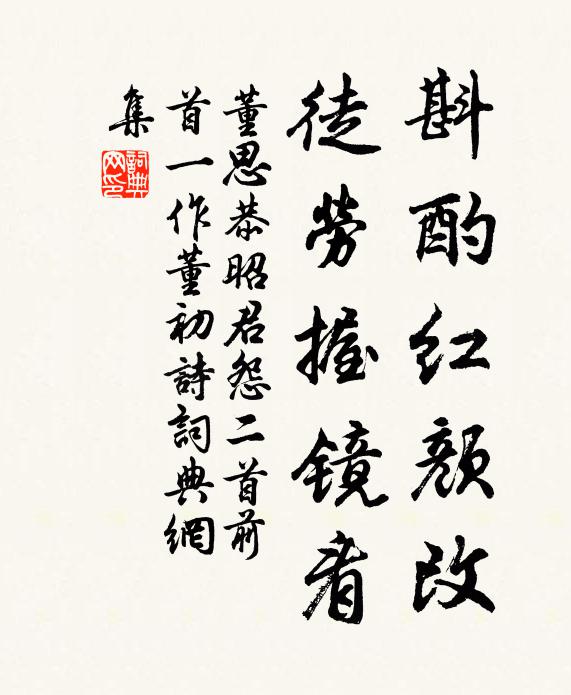 斟酌红颜改
徒勞握镜看
董思恭昭君怨二首前
首一作董初詩詞典網
集
詞典网印